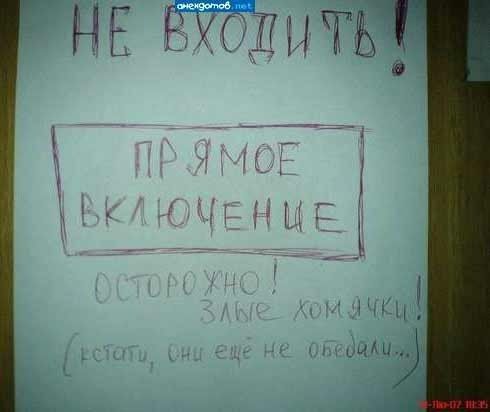 анекдотов.net
НЕ ВХОДИТЬ!
ПРЯМОЕ
ВКЛЮЧЕНИЕ
ОСТОРОЖНО!
Злые хомячки!
(кстати, они ещё не обедали...)